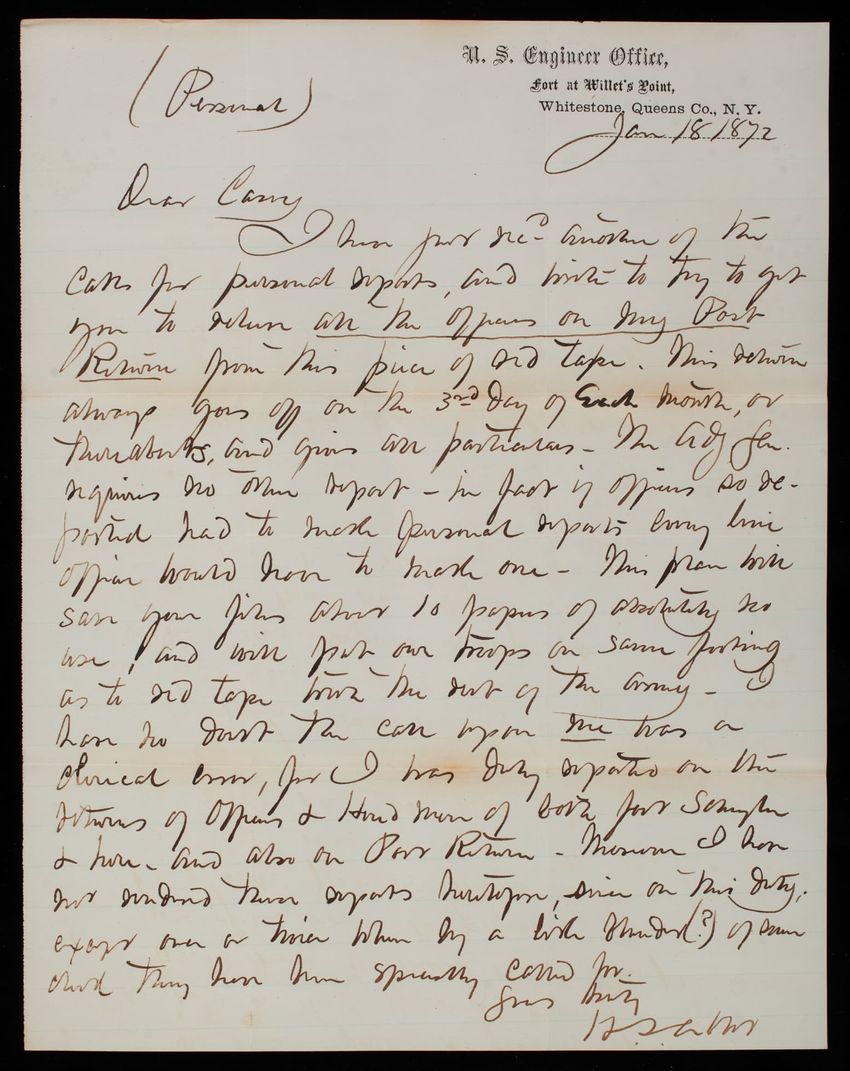 U. S. Engineer Office,
Fort at Willet's Point,
Whitestone, Queens Co., N. Y.
(Personal)
Jan 18 1872
Dear Casey
I have just rec'd another of the
calls for personal reports, and write to try to get
you to relieve all the officers on my Post
Return from this piece of red tape. This return
always goes off on the 3rd day of each month, or
thereabouts, and gives all particulars - The Adj Gen.
requires no other report - in fact if officers so re-
ported had to make personal reports every line
officer would have to make one - This plan will
save your files about 10 papers of absolutely no
use, and will put our troops on same footing
as to red tape with the rest of the army - I
have no doubt the call upon me was a
clerical error, for I was duly reported on the
returns of Officers & Hired men of both fort Schuyler
& here - and also on Post Return - Moreover I have
not rendered these reports heretofore, since on this duty,
except once or twice when by a little blunder (?) of some
clerk they have been specially called for.
Yours truly
H. L. Abbot